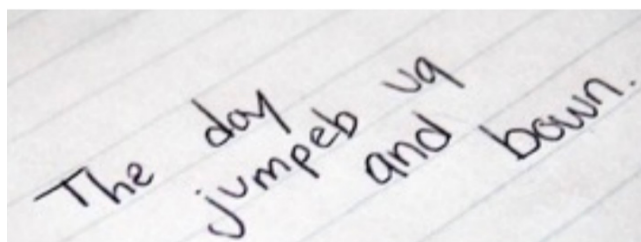 The day
jumpeb uq
and bown.